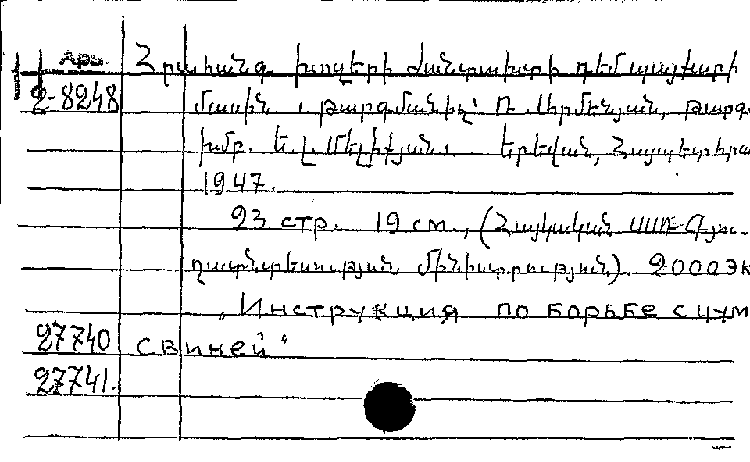 Арм. Հրահանգ խոզերի ժանտախտի դեմ պայքարի
2-8248 մասին. Թարգմանիչ՝ Ռ. Սիրմենյան, թարգ.
խմբ. Ե. Լ. Մելիքյան. Երեվան, Հայպետհրա
1947.
23 стр. 19 см., (Հայկական ՍՍՌ Գյու-
ղատնտեսության մինիստրություն). 2000 эк
„Инструкция по борьбе с чум
27740 свиней“
27741.